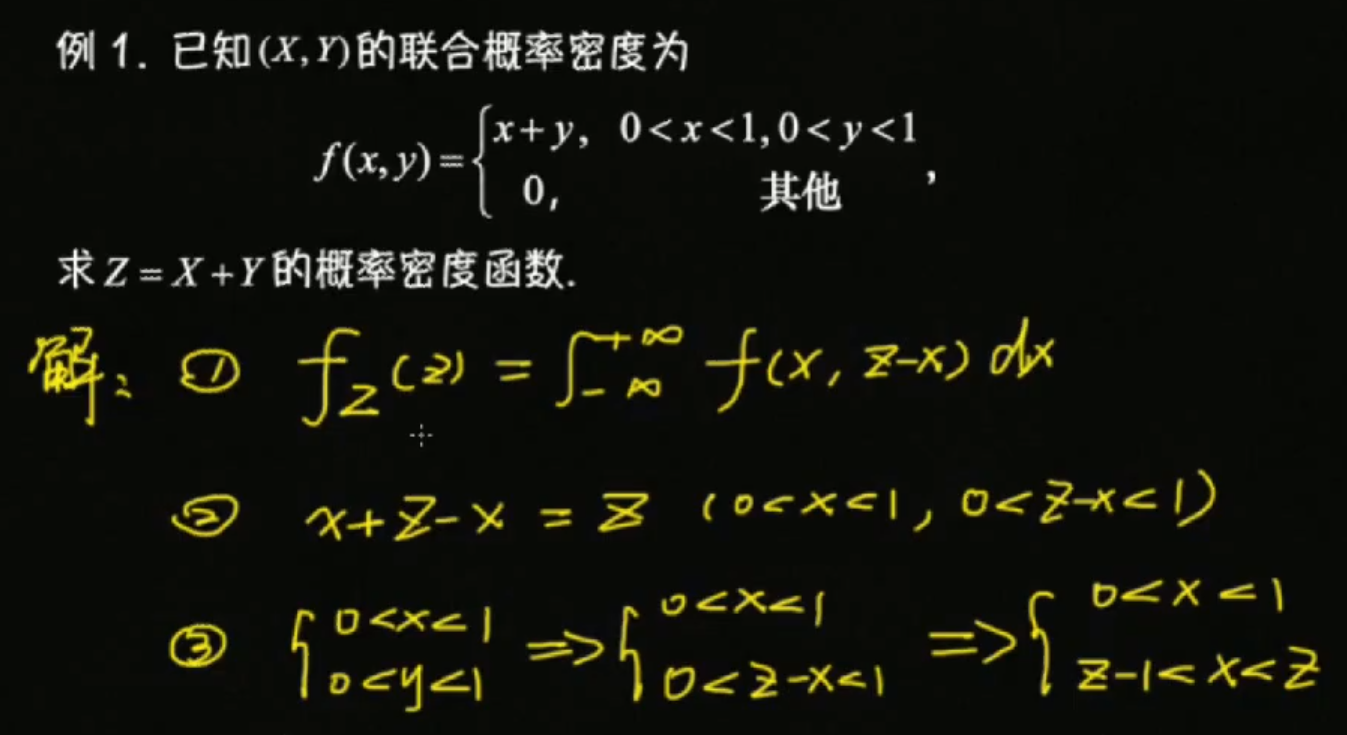 例 1. 已知(X,Y)的联合概率密度为
f(x,y)={x+y, 0<x<1,0<y<1
0, 其他 ,
求Z=X+Y的概率密度函数.
解: ① f_Z(z) = ∫_{-∞}^{+∞} f(x, z-x) dx
② x+z-x = z (0<x<1, 0<z-x<1)
③ { 0<x<1 => { 0<x<1 => { 0<x<1
0<y<1 0<z-x<1 z-1<x<z